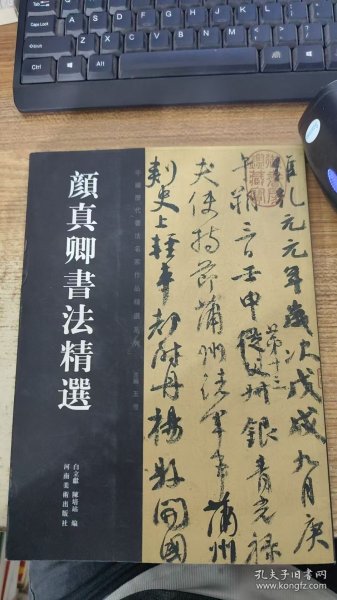 顏真卿書法精選
中國歷代書法名家作品精選系列
主編 王澄
白立獻 陳培站 編
河南美術出版社
維乾元元年歲次戊戌九月庚
午朔三日壬申
第十三
銀青光祿
夫使持節蒲州諸軍事蒲州
刺史上輕車都尉丹楊縣開國
孔夫子旧书网
kongfz.com